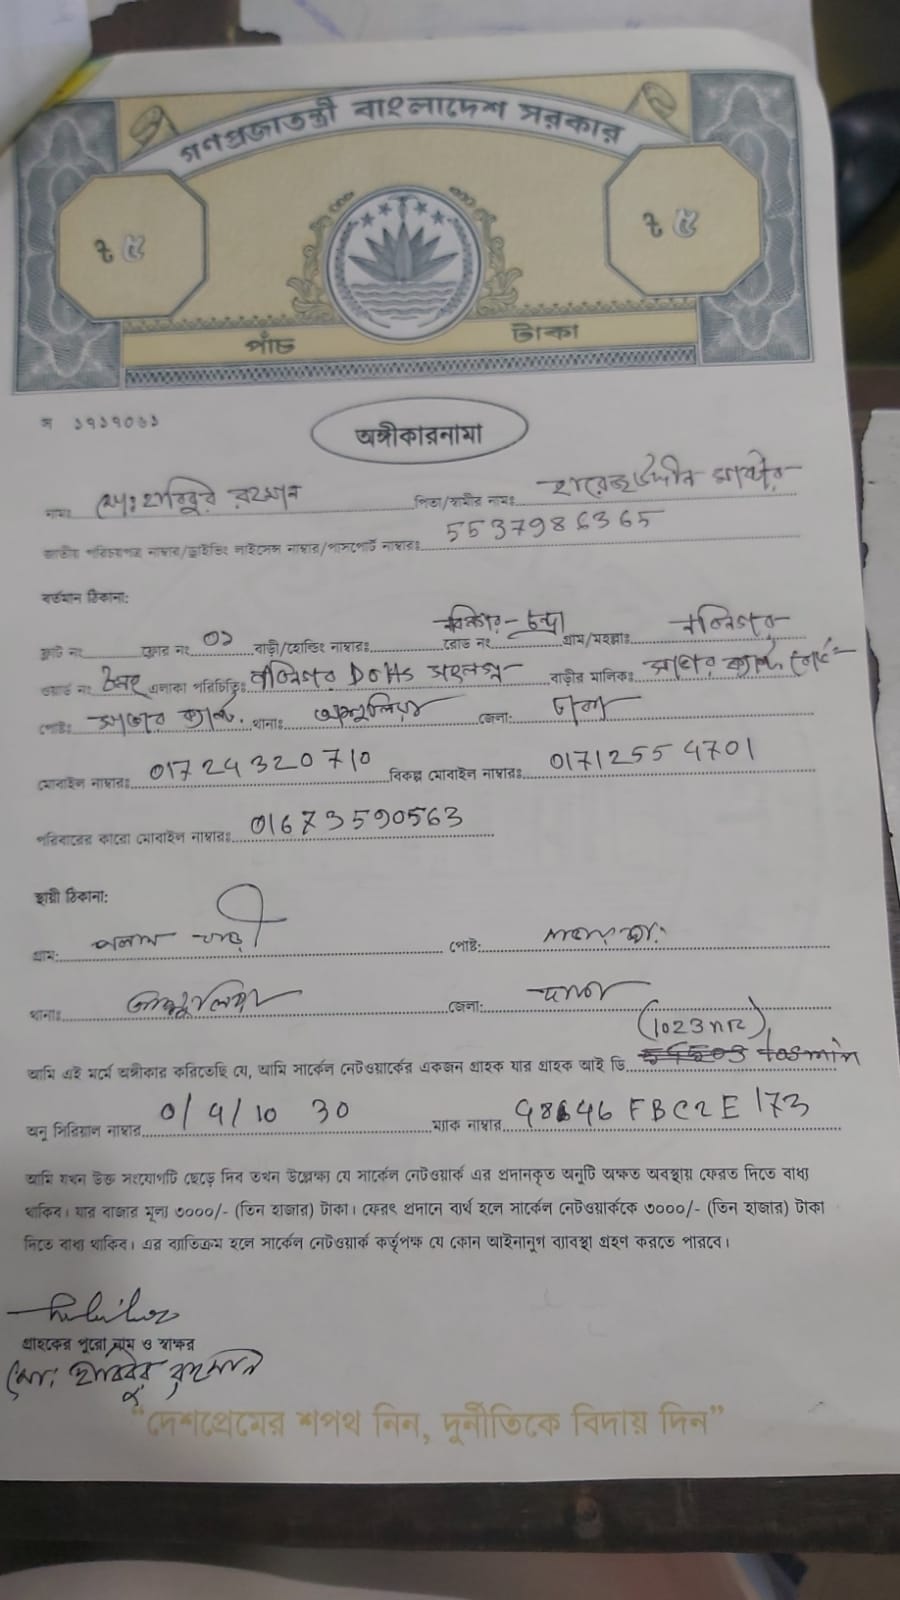 গণপ্রজাতন্ত্রী বাংলাদেশ সরকার
৳ ৫ ৳ ৫
পাঁচ টাকা
অঙ্গীকারনামা
নামঃ মোঃ হাবিবুর রহমান পিতা/স্বামীর নামঃ
জাতীয় পরিচয়পত্র নাম্বার/ড্রাইভিং লাইসেন্স নাম্বার/পাসপোর্ট নাম্বারঃ 5537986365
বর্তমান ঠিকানা:
ফ্লাট নং ফ্লোর নং ০১ বাড়ী/হোল্ডিং নাম্বারঃ রোড নং গ্রাম/মহল্লাঃ
ওয়ার্ড নং এলাকা পরিচিতিঃ DOHS সংলগ্ন বাড়ীর মালিকঃ
পোষ্টঃ সাভার ক্যান্ট. থানাঃ আশুলিয়া জেলা: ঢাকা
মোবাইল নাম্বারঃ 01724320710 বিকল্প মোবাইল নাম্বারঃ 01712554701
পরিবারের কারো মোবাইল নাম্বারঃ 01673590563
স্থায়ী ঠিকানা:
গ্রাম: পোষ্ট:
থানাঃ আশুলিয়া জেলা: ঢাকা
(1023nr)
আমি এই মর্মে অঙ্গীকার করিতেছি যে, আমি সার্কেল নেটওয়ার্কের একজন গ্রাহক যার গ্রাহক আই ডি
অনু সিরিয়াল নাম্বার 0/4/10 30 ম্যাক নাম্বার FBC2E173
আমি যখন উক্ত সংযোগটি ছেড়ে দিব তখন উল্লেক্ষ্য যে সার্কেল নেটওয়ার্ক এর প্রদানকৃত অনুটি অক্ষত অবস্থায় ফেরত দিতে বাধ্য
থাকিব। যার বাজার মূল্য ৩০০০/- (তিন হাজার) টাকা। ফেরৎ প্রদানে ব্যর্থ হলে সার্কেল নেটওয়ার্ককে ৩০০০/- (তিন হাজার) টাকা
দিতে বাধ্য থাকিব। এর ব্যতিক্রম হলে সার্কেল নেটওয়ার্ক কর্তৃপক্ষ যে কোন আইনানুগ ব্যাবস্থা গ্রহণ করতে পারবে।
গ্রাহকের পুরো নাম ও স্বাক্ষর
মোঃ হাবিবুর রহমান
“দেশপ্রেমের শপথ নিন, দুর্নীতিকে বিদায় দিন”